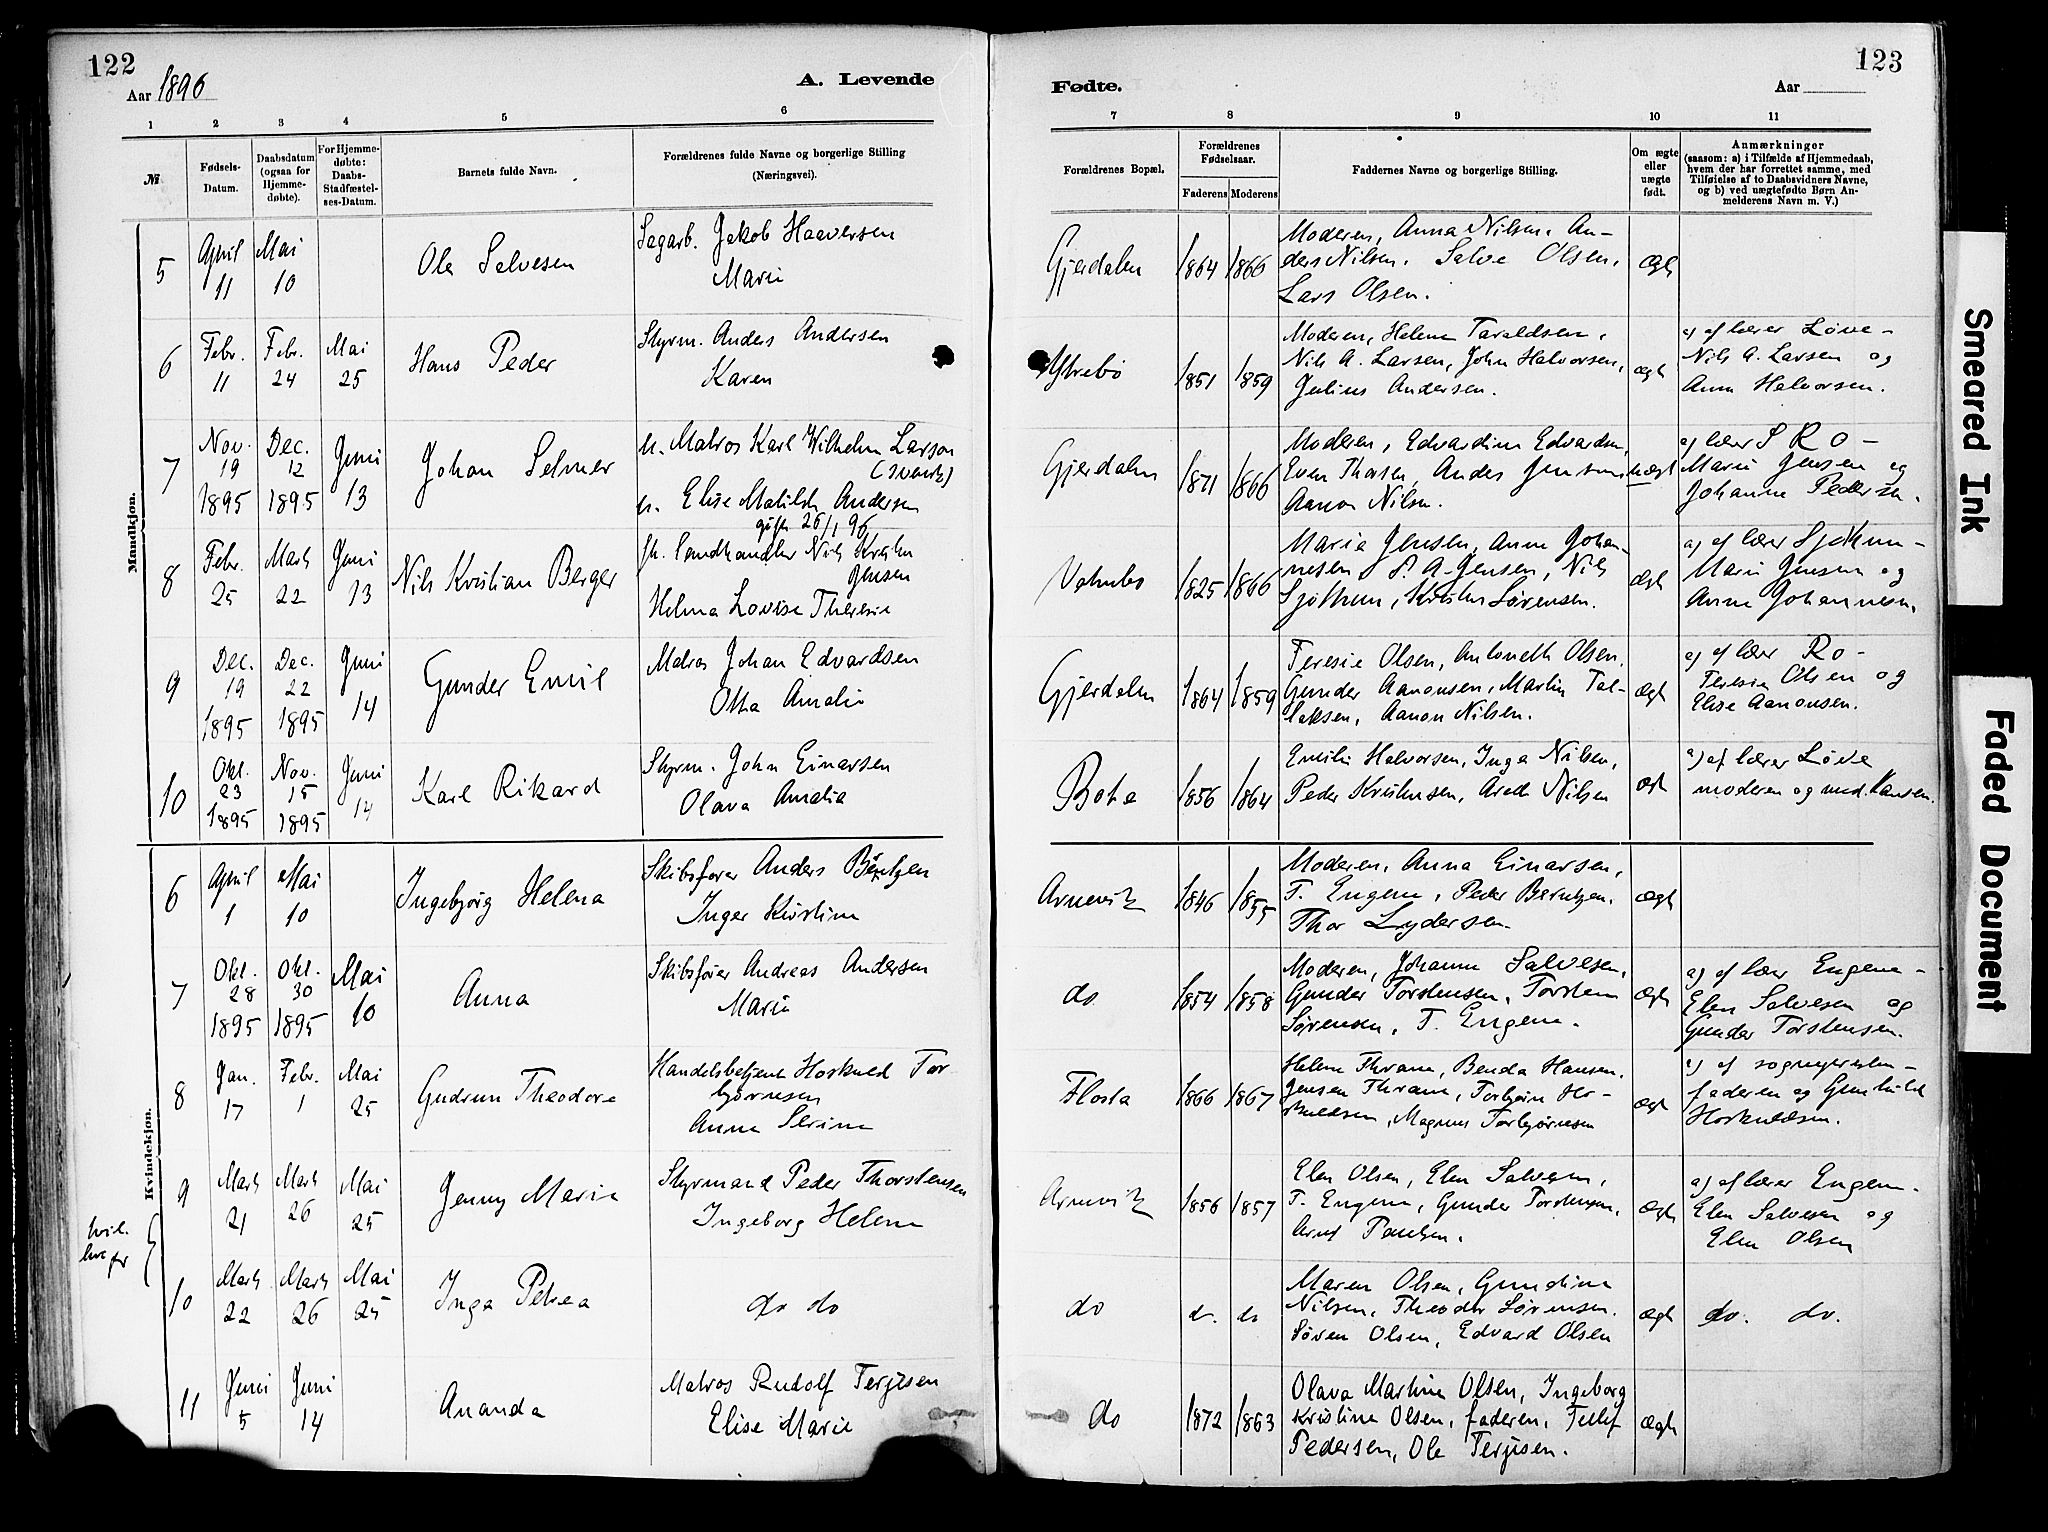 122
Aar 1896
A. Levende
1 2 3 4 5 6
№
Fødsels-
Datum.
Daabsdatum
(ogsaa for
Hjemme-
døbte).
For Hjemme-
døbte:
Daabs-
Stadfæstel-
ses-Datum.
Barnets fulde Navn.
Forældrenes fulde Navne og borgerlige Stilling
(Næringsvei).
Mandkjøn.
5
April
11
Mai
10
Ole Salvesen
Sagarb. Jakob Haaversen
Marie
6
Febr.
11
Febr.
24
Mai
25
Hans Peder
Styrm. Anders Andersen
Karen
7
Nov.
19
1895
Dec.
12
1895
Juni
13
Johan Selmer
u. Matros Karl Wilhelm Larson
(svensk)
u. Elise Matilde Andersen
gift 26/1 96
8
Febr.
25
Marts
22
Juni
13
Nils Kristian Berger
fh. Landhandler Nils Kristen
Jensen
Helma Lovise Theresie
9
Dec.
19
1895
Dec.
22
1895
Juni
14
Gunder Emil
Matros Johan Edvardsen
Otta Amalie
10
Okt.
23
1895
Nov.
15
1895
Juni
14
Karl Rikard
Styrm. John Einarsen
Olava Amalia
Kvindekjøn.
6
April
1
Mai
10
Ingebjørg Helena
Skibsfører Anders Berntzen
Inger Kirstine
7
Okt.
28
1895
Okt.
30
1895
Mai
10
Anna
Skibsfører Andreas Andersen
Marie
8
Jan.
17
Febr.
1
Mai
25
Gudrun Theodore
Handelsbetjent Horskuld Tor
bjørnsen
Anna Serine
9
Marts
21
Marts
26
Mai
25
Jenny Marie
Styrmand Peder Thorstensen
Ingeborg Helene
10
Marts
22
Marts
26
Mai
25
Inga Petrea
do do
11
Juni
5
Juni
14
Ananda
Matros Rudolf Terjesen
Elise Marie
123
Fødte.
Aar
7 8 9 10 11
Forældrenes Bopæl.
Forældrenes
Fødselsaar.
Faderens Moderens
Faddernes Navne og borgerlige Stilling.
Om ægte
eller
uægte
født.
Anmærkninger
(saasom: a) i Tilfælde af Hjemmedaab,
hvem der har forrettet samme, med
Tilføielse af to Daabsvidners Navne,
og b) ved uægtefødte Børn An-
melderens Navn m. V.)
Gjerdalen
1864 1866
Moderen, Anna Nilsen. An-
ders Nilsen. Salve Olsen.
Lars Olsen.
Ægte
Ytrebø
1851 1859
Moderen, Helene Taraldsen,
Nils A. Larsen, John Halvorsen,
Julius Andersen.
ægte
a) af lærer Løve-
Nils A. Larsen og
Anna Halvorsen.
Gjerdalen
1871 1866
Moderen, Edvardine Edvardsen,
Even Thorsen, Anders Jensen
Aanon Nilsen.
uægte
a) lærer S Ro-
Marie Jensen og
Johanne Pedersen.
1825 1866
Maria Jensen, Anne Johan-
nesen P. A. Jensen, Nils
Sjøthun, Kristen Sørensen.
ægte
a) af lærer Sjøthun-
Marie Jensen og
Anne Johannesen.
Gjerdalen
1864 1859
Teresie Olsen, Antonette Olsen.
Gunder Aanonsen, Martin Tal-
laksen, Aanon Nilsen.
ægte
a) af lærer Ro-
Teresie Olsen og
Elise Aanonsen.
Bota
1856 1864
Emilie Halvorsen, Inga Nilsen,
Peder Kristensen, Arent Nilsen
ægte
a) af lærer Løve
moderen og md. Hansen.
Arnevik
1846 1855
Moderen, Anna Einarsen,
T. Engene, Peder Berntzen.
Thor Lydersen.
ægte
do.
1854 1858
Moderen, Johanne Salvesen,
Gunder Torstensen, Torsten
Sørensen, T. Engene.
ægte
a) af lærer Engene-
Elen Salvesen og
Gunder Torstensen.
Flosta
1866 1867
Helene Thrane, Benda Hansen.
Jensen Thrane, Torbjørn Hor-
skuldsen, Magnus Torbjørnsen
ægte
a) af sognepresten-
faderen og Gunhild
Horskuldsen.
Arnevik
1856 1857
Elen Olsen, Elen Salvesen,
T. Engene, Gunder Torstensen,
Arnt Paulsen.
Ægte
a) af lærer Engene.
Elen Salvesen og
Elen Olsen
do
do. do
Maren Olsen, Gundine
Nilsen, Theodor Sørensen.
Søren Olsen, Edvard Olsen
Ægte
do. do.
do
1872 1863
Olava Martine Olsen, Ingeborg
Kristine Olsen, faderen, Tellef
Pedersen, Ole Terjesen.
ægte
Smeared Ink
Faded Document